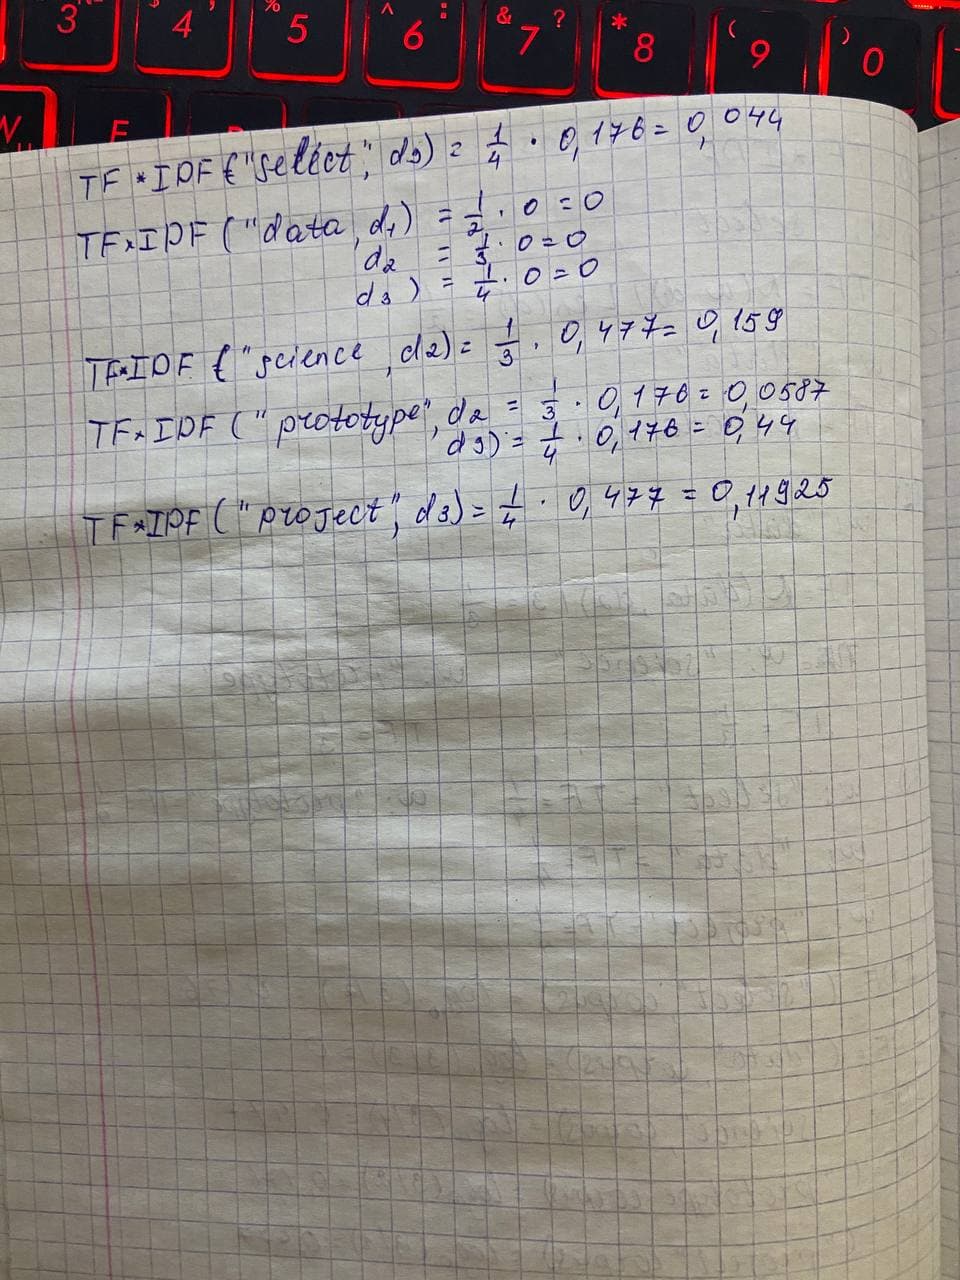 3 4 5 6 7 8 9 0
% ^ : & ? * ( )
W E
TF*IDF ("select", d3) = 1/4 · 0,176 = 0,044
TF×IDF ("data, d1) = 1/2 · 0 = 0
d2 = 1/3 · 0 = 0
d3) = 1/4 · 0 = 0
TF*IDF ("science, d2) = 1/3 · 0,477 = 0,159
TF×IDF ("prototype", d2 = 1/3 · 0,176 = 0,0587
d3) = 1/4 · 0,176 = 0,44
TF*IDF ("project", d3) = 1/4 · 0,477 = 0,11925